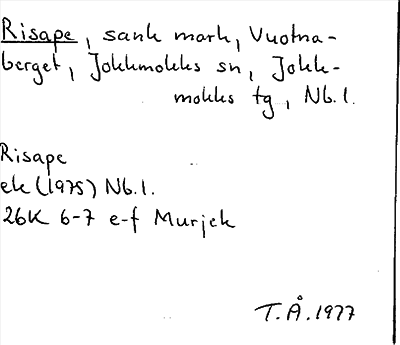 Risape, sank mark, Vuotna-
berget, Jokkmokks sn, Jokk-
mokks tg, Nb.l.
Risape
ek (1975) Nb.l.
26K 6-7 e-f Murjek
T.Å.1977